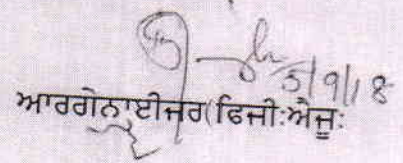 5/9/18
ਆਰਗੇਨਾਈਜਰ(ਫਿਜੀ:ਐਜੂ: